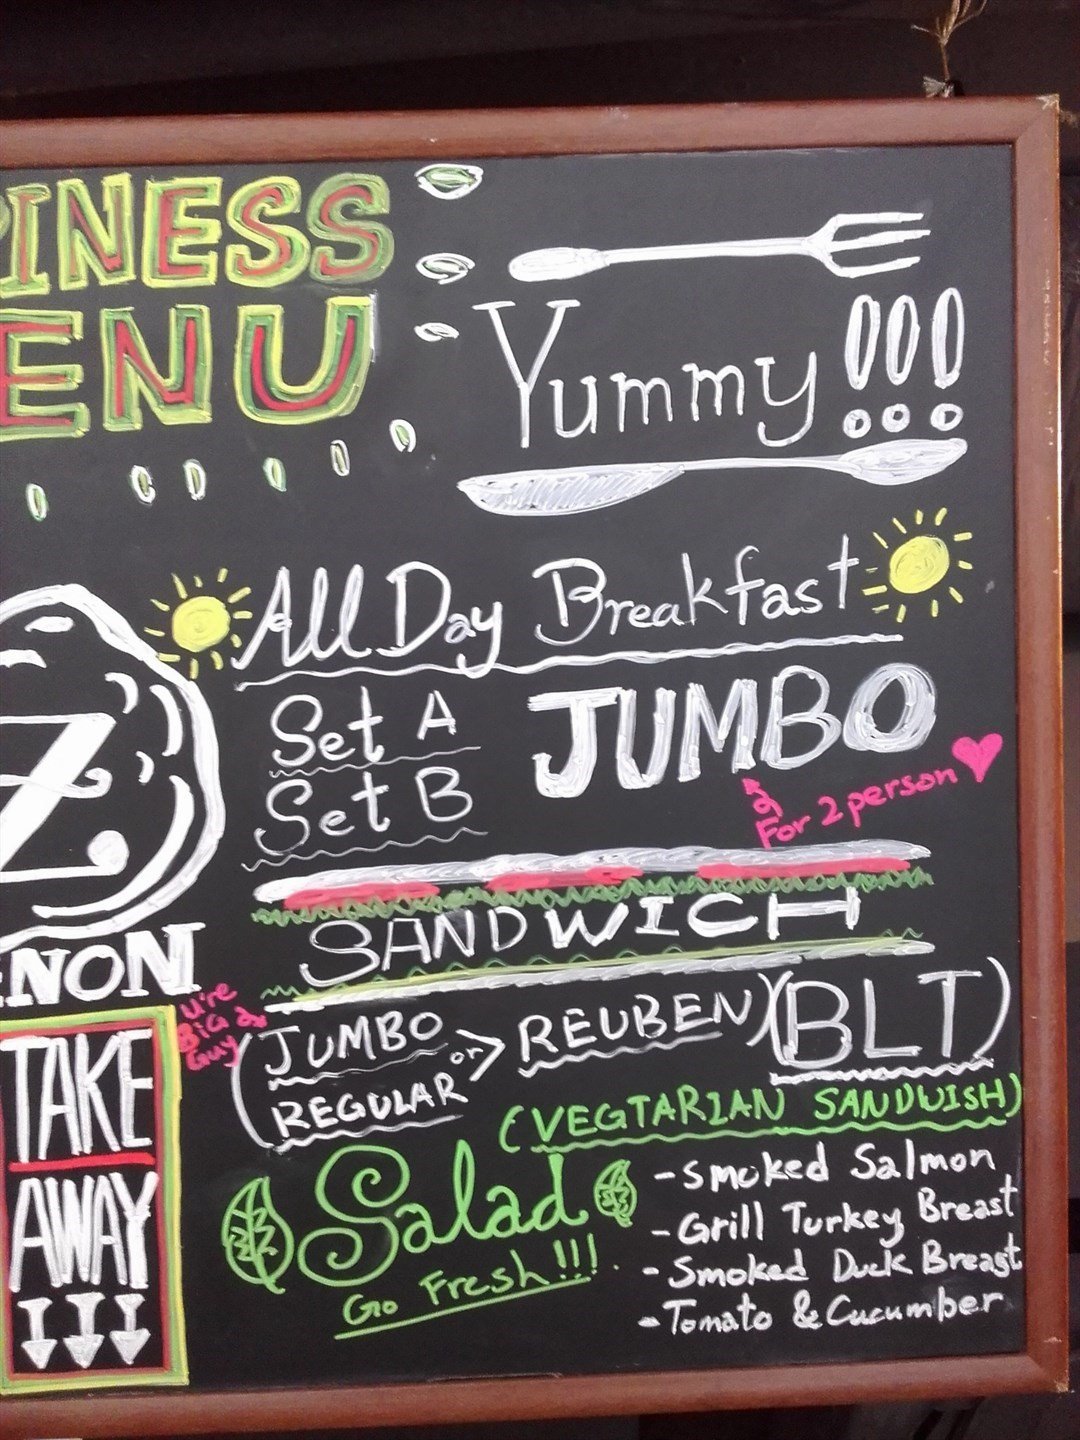 PINESS
ENU
Yummy!!!
All Day Breakfast
Set A
Set B
JUMBO
For 2 person
SANDWICH
Z
NON
U're
BiG
Guy
(JUMBO or REGULAR > REUBEN) (BLT)
(VEGTARIAN SANDWISH)
TAKE
AWAY
Salad
Go Fresh!!!
- Smoked Salmon
- Grill Turkey Breast
- Smoked Duck Breast
- Tomato & Cucumber